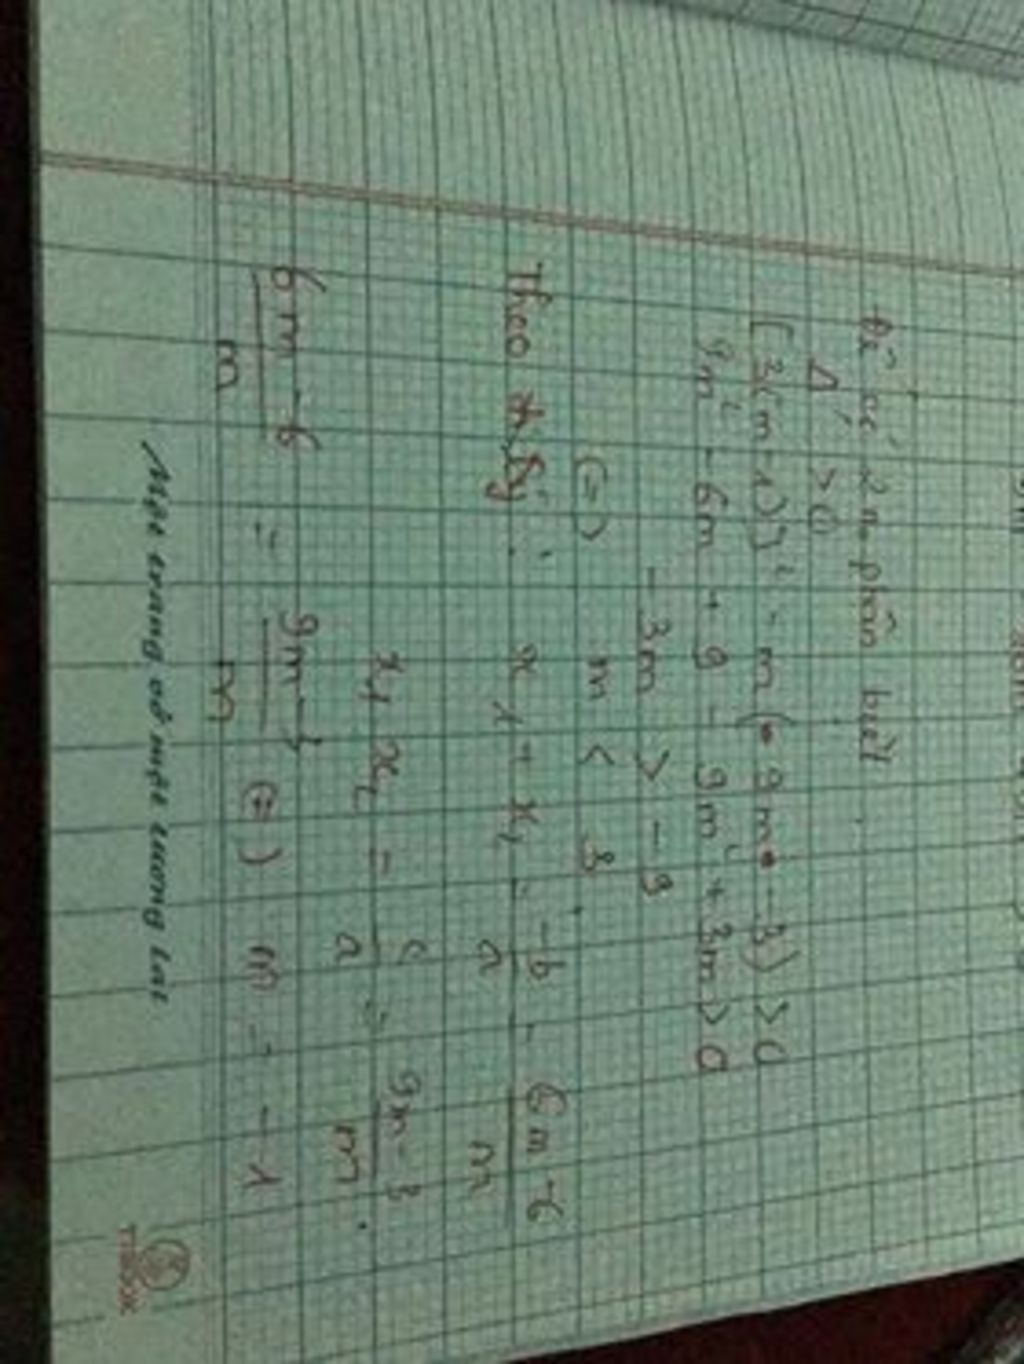 Để có 2 n_o phân biệt
Δ' > 0
[3(m-1)]² - m(9m - 3) > 0
9m² - 6m + 9 - 9m² + 3m > 0
-3m > -9
(=) m < 3
Theo Vi-ét: x₁ + x₂ = -b/a = 6m-6/m
x₁ x₂ = c/a = 9m-3/m
6m-6/m = 9m-3/m (=) m = -1
Một trang vở một tương lai